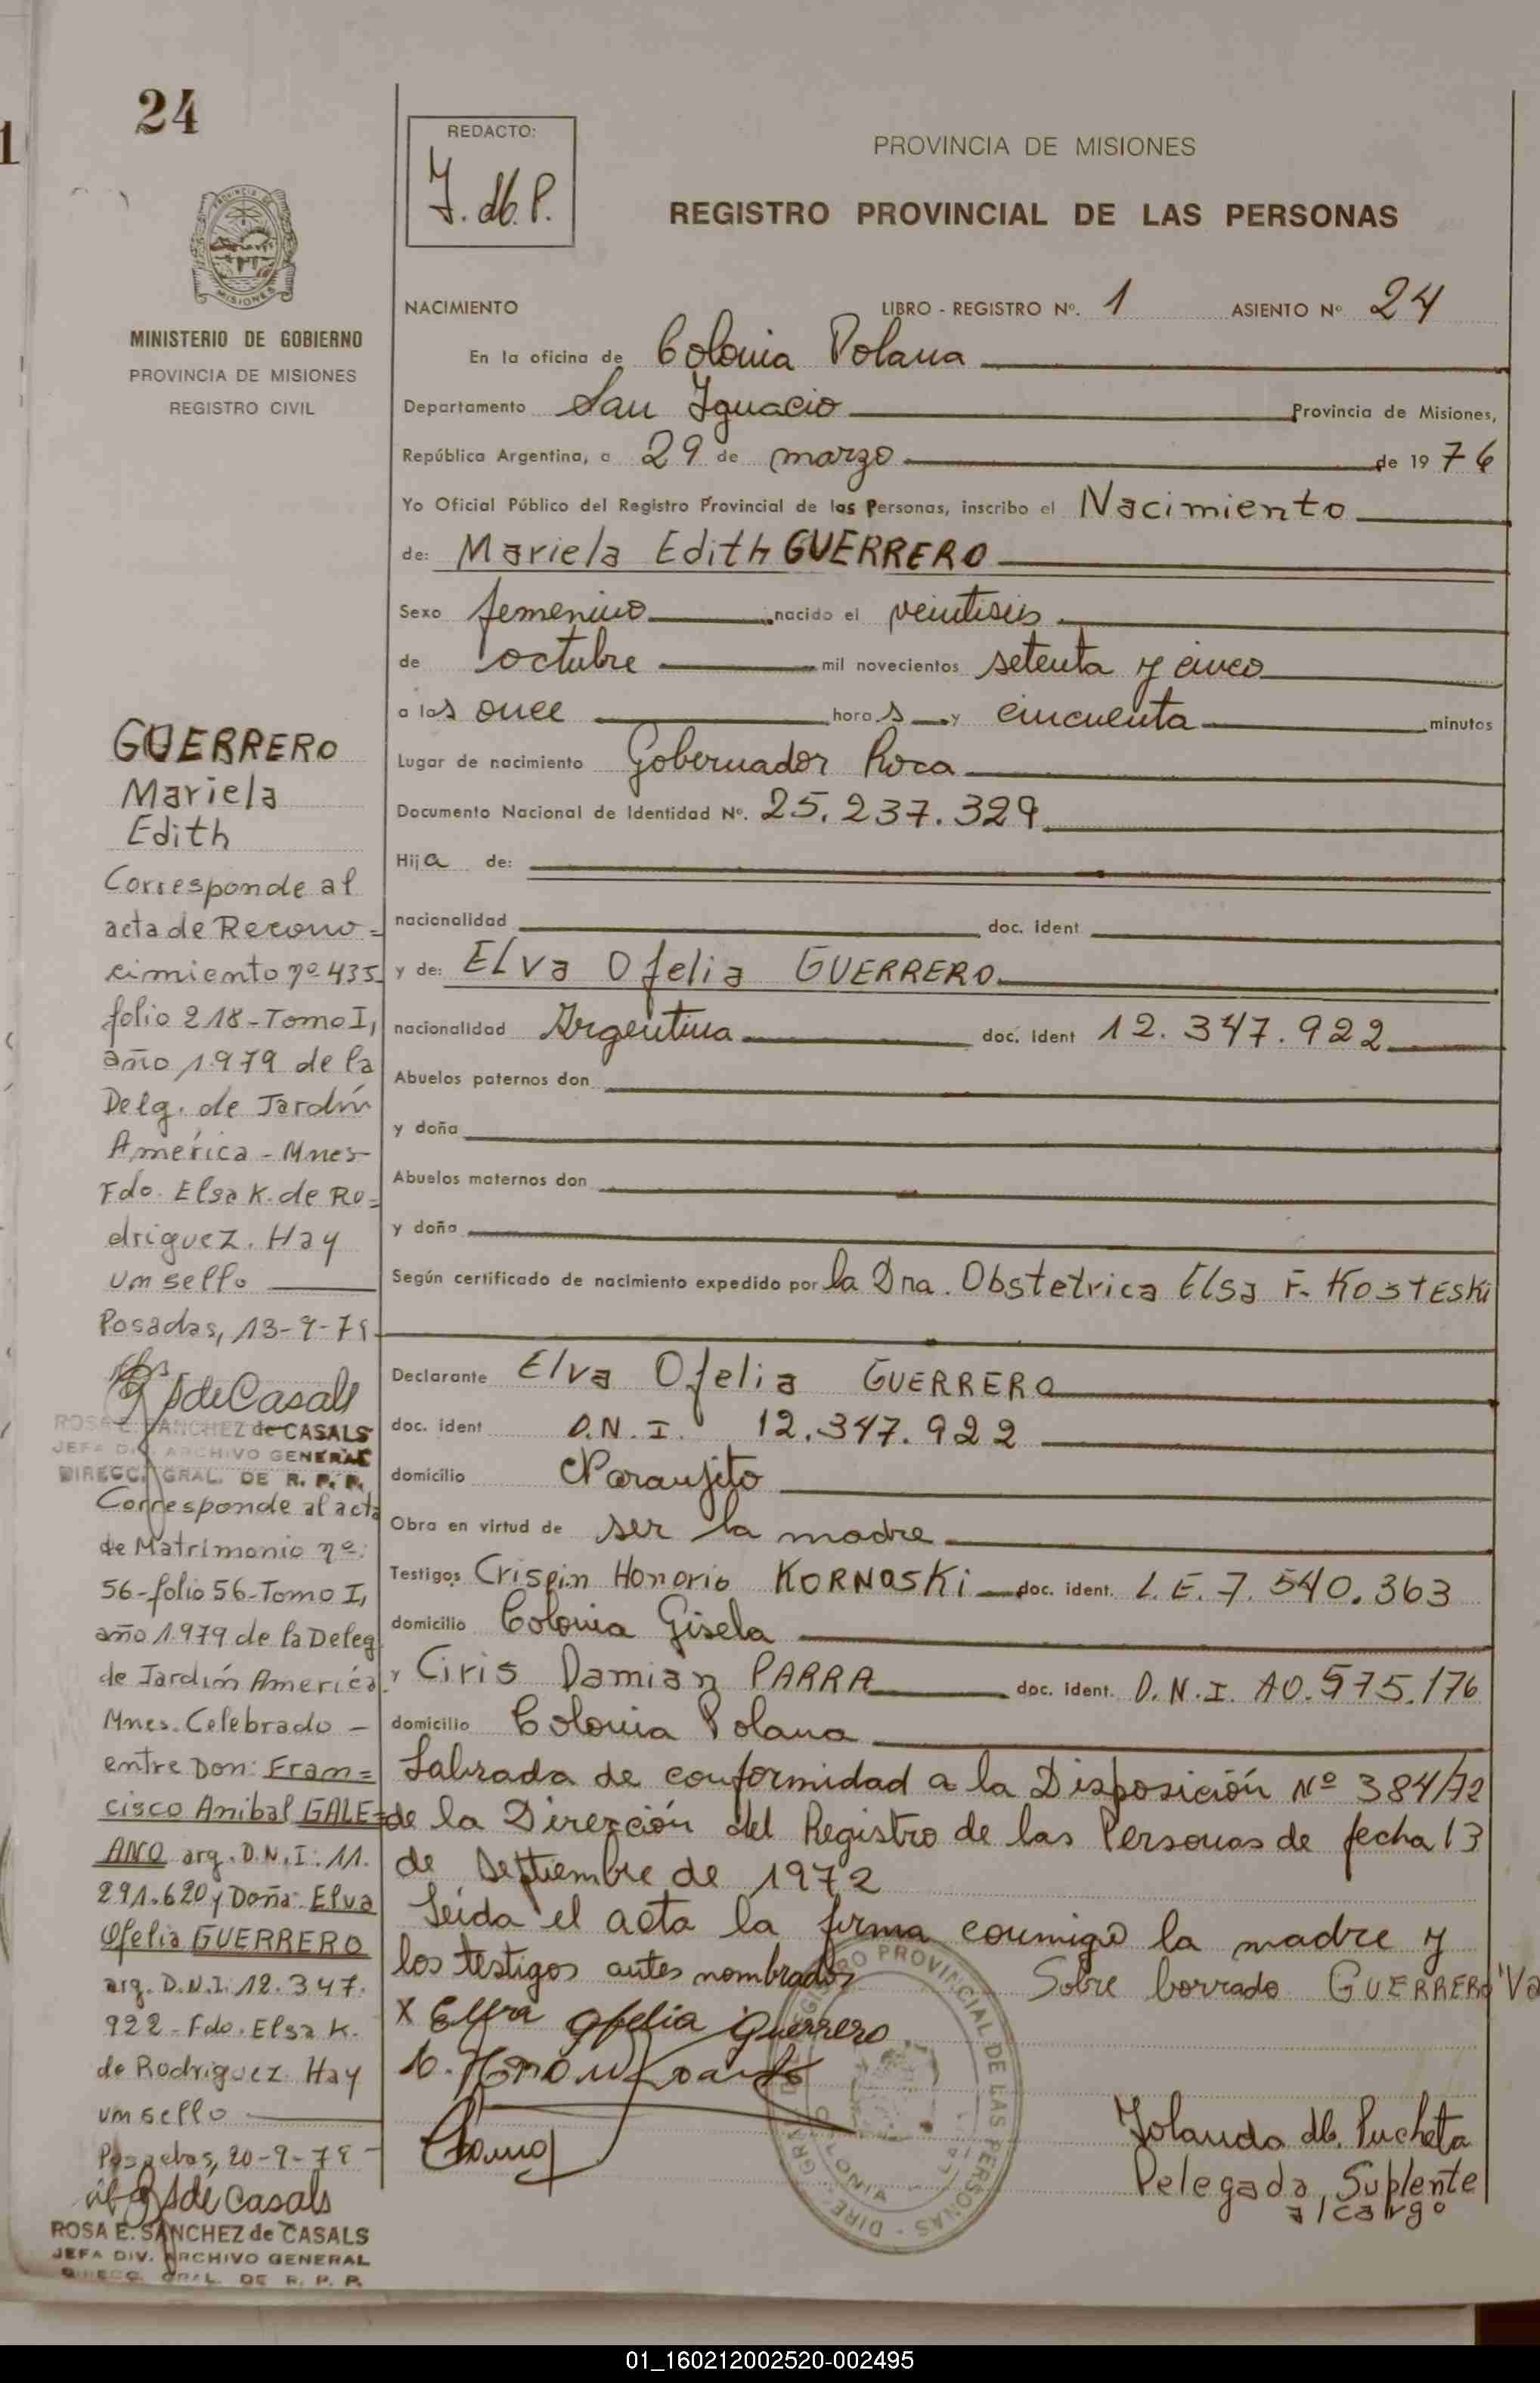 24
1
REDACTO:
Y. db. P.
PROVINCIA DE MISIONES
REGISTRO PROVINCIAL DE LAS PERSONAS
MISIONES
MINISTERIO DE GOBIERNO
PROVINCIA DE MISIONES
REGISTRO CIVIL
NACIMIENTO LIBRO - REGISTRO Nº. 1 ASIENTO Nº 24
En la oficina de Colonia Polana
Departamento San Ignacio Provincia de Misiones,
República Argentina, a 29 de marzo de 1976
Yo Oficial Público del Registro Provincial de las Personas, inscribo el Nacimiento
de: Mariela Edith GUERRERO
Sexo femenino nacido el veintiseis
de octubre mil novecientos setenta y cinco
a las once horas y cincuenta minutos
Lugar de nacimiento Gobernador Roca
Documento Nacional de Identidad Nº. 25.237.329
Hija de:
nacionalidad doc. ident
y de: Elva Ofelia GUERRERO
nacionalidad Argentina doc. ident 12.347.922
Abuelos paternos don
y doña
Abuelos maternos don
y doña
Según certificado de nacimiento expedido por la Dra. Obstetrica Elsa F. KosTEski
Declarante Elva Ofelia GUERRERO
doc. ident D.N.I. 12.347.922
domicilio Naranjito
Obra en virtud de ser la madre
Testigos Crispin Honorio KORNOSKi doc. ident. L.E. 7.540.363
domicilio Colonia Gisela
y Ciris Damian PARRA doc. ident. D.N.I. 10.575.176
domicilio Colonia Polana
Labrada de conformidad a la Disposición Nº 384/72
de la Dirección del Registro de las Personas de fecha 13
de septiembre de 1972
Leida el acta la firma conmigo la madre y
los testigos antes nombrados
Sobre borrado GUERRERO Va
X Elva Ofelia Guerrero
Yolanda db. Pucheta
Delegada Suplente
a/cargo
REGISTRO PROVINCIAL DE LAS PERSONAS
GUERRERO
Mariela
Edith
Corresponde al
acta de Recono=
cimiento nº 435
folio 218-Tomo I,
año 1.979 de la
Delg. de Jardín
América - Mnes-
Fdo. Elsa K. de Ro=
driguez. Hay
un sello
Posadas, 13-9-79
SdeCasals
ROSA E. SANCHEZ de CASALS
JEFA DIV. ARCHIVO GENERAL
DIRECC. GRAL. DE R. P. P.
Corresponde al acta
de Matrimonio nº:
56-folio 56-Tomo I,
año 1.979 de la Deleg
de Jardín América.
Mnes. Celebrado -
entre Don: Fran=
cisco Anibal GALE=
ANO arg. D.N.I: 11.
291.620 y Doña: Elva
Ofelia GUERRERO
arg. D.N.I. 12.347.
922 - Fdo. Elsa K.
de Rodriguez. Hay
un sello
Posadas, 20-9-79
Sde Casals
ROSA E. SANCHEZ de CASALS
JEFA DIV. ARCHIVO GENERAL
DIRECC. GRAL. DE R. P. P.
01_160212002520-002495